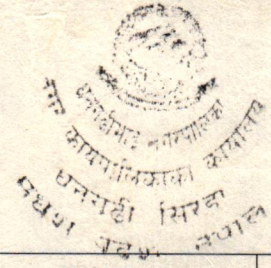 धनगढीमाई नगरपालिका
नगर कार्यपालिकाको कार्यालय
धनगढी सिरहा
मधेश प्रदेश नेपाल